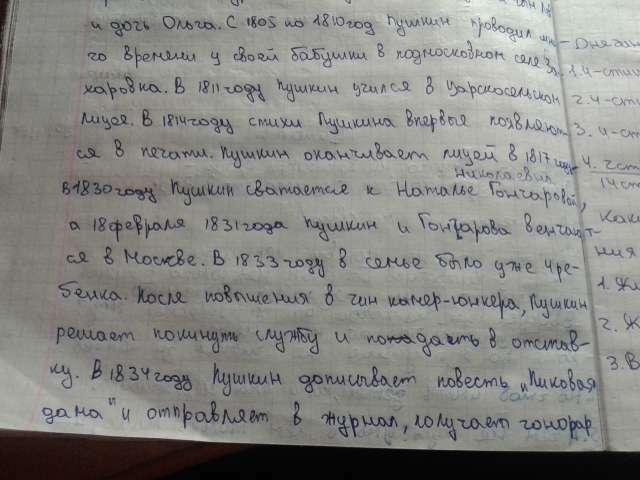 и дочь Ольга. С 1805 по 1810 год Пушкин проводил мно-
го времени у своей бабушки в подмосковном селе За-
харовка. В 1811 году Пушкин учился в Царскосельском
лицее. В 1814 году стихи Пушкина впервые появляют-
ся в печати. Пушкин оканчивает лицей в 1817 году
в 1830 году Пушкин сватается к Наталье Гончаровой,
николаевич
а 18 февраля 1831 года Пушкин и Гончарова венчают-
ся в Москве. В 1833 году в семье было уже 4 ре-
бенка. После повышения в чин камер-юнкера, Пушкин
решает покинуть службу и попадать в отстав-
ку. В 1834 году Пушкин дописывает повесть „Пиковая
дама" и отправляет в журнал, получает гонорар
1. 4-сти
2. 4-ст
3. 4-с
4. 2 ст
14 ст
Как
ния
1. Жи
2. Ж
3. В